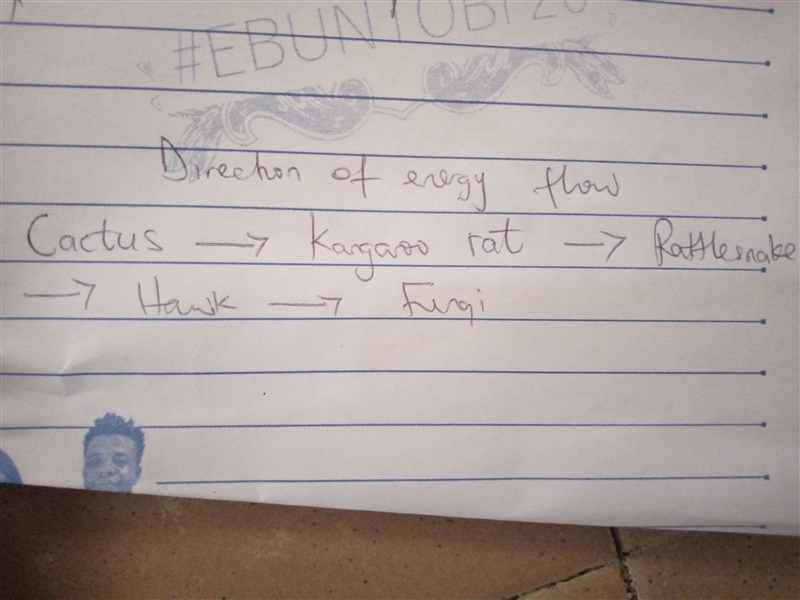 #EBUNTOBI'20
Direction of enegy flow
Cactus → Kangaroo rat → Rattlesnake
→ Hawk → Fungi